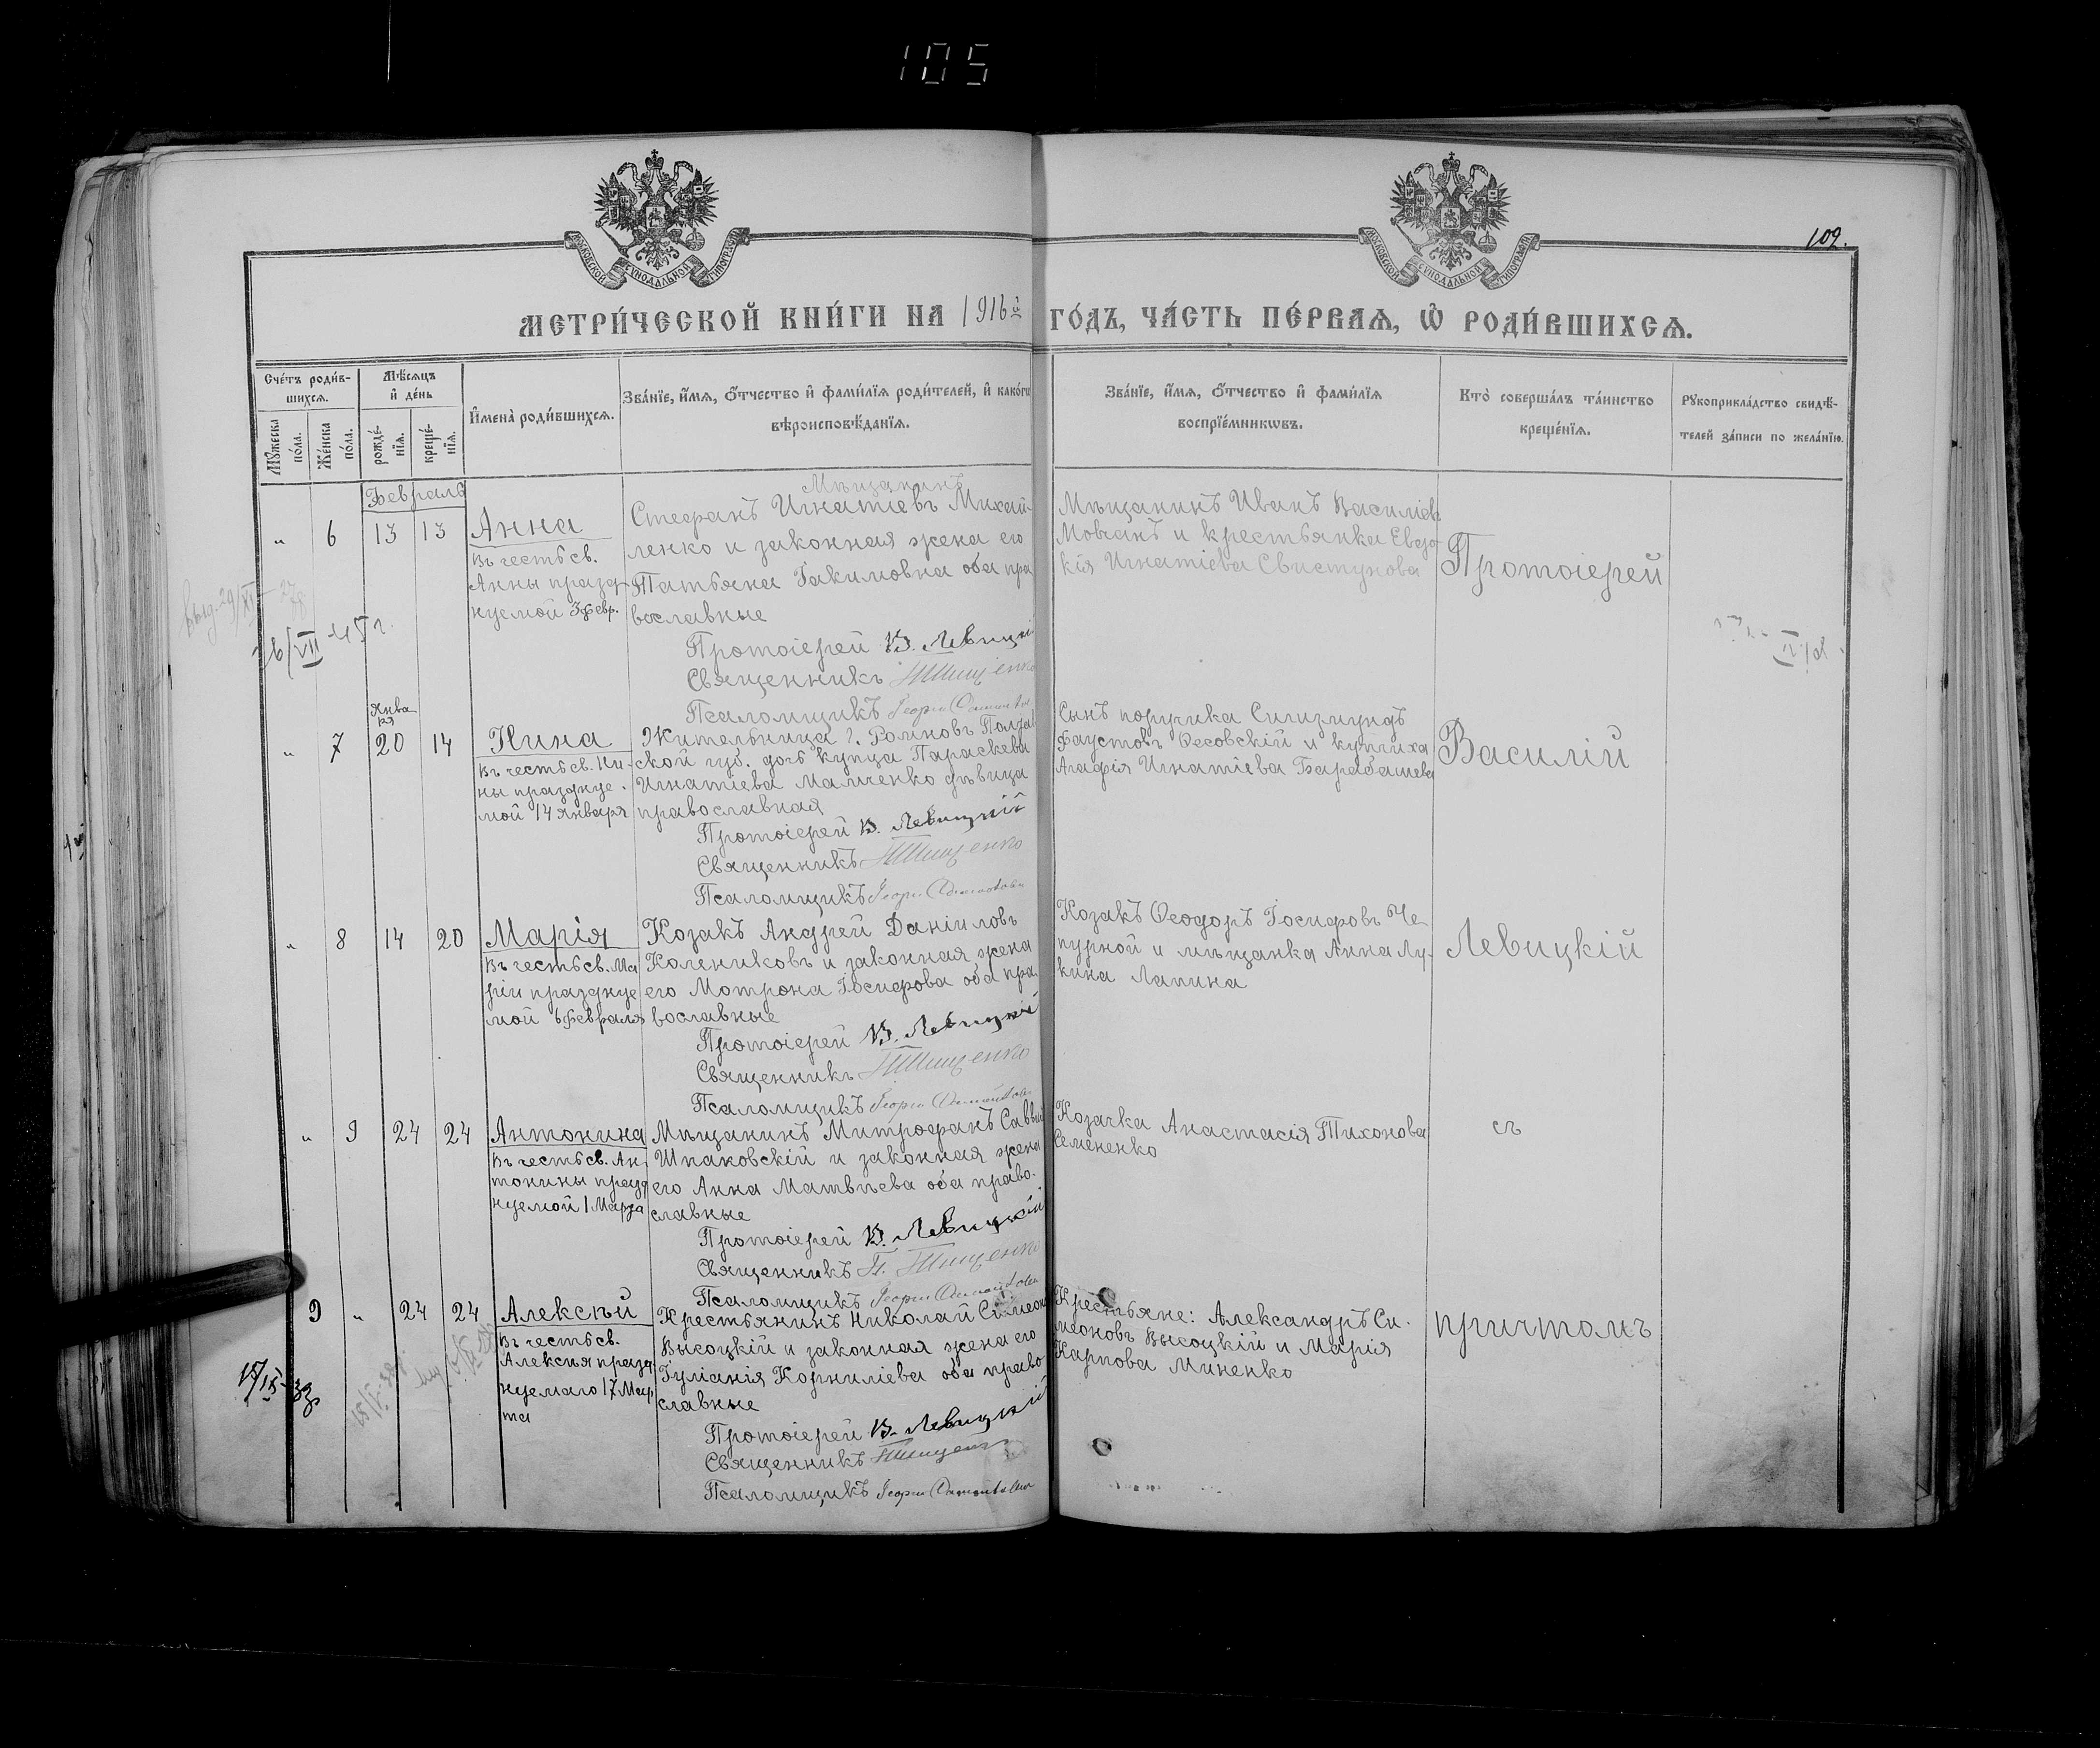 105
МОСКОВСКОЙ СУНОДАЛЬНОЙ ТИПОГРАФІИ
МОСКОВСКОЙ СУНОДАЛЬНОЙ ТИПОГРАФІИ
109.
МЕТРИ́ЧЕСКОЙ КНИ́ГИ НА 1916й ГО́ДЪ, ЧА́СТЬ ПЕ́РВАѦ, Ѡ РОДИ́ВШИХСѦ.
Сче́тъ роди́в-
шихсѧ.
Мꙋжеска по́ла.
Же́нска по́ла.
Мѣ́сѧцъ и҆ де́нь
рожде́-
нїѧ.
креще́-
нїѧ.
И҆мена̀ роди́вшихсѧ.
Зва́нїе, и҆́мѧ, ѻ҆́тчество и҆ фами́лїѧ роди́телей, и҆ како́гѡ
вѣроисповѣ́данїѧ.
Зва́нїе, и҆́мѧ, ѻ҆́тчество и҆ фами́лїѧ
воспрїе́мникѡвъ.
Кто̀ соверша́лъ та́инство
креще́нїѧ.
Рꙋкоприкла́дство свидѣ́-
телей за́писи по жела́нїю.
Февраль
" 6 13 13
Анна
Въ честь св.
Анны празд-
нуемой 3 Февр.
Мѣщанинъ
Стефанъ Игнатіевъ Михай-
ленко и законная жена его
Татьяна Іакимовна оба пра
вославные
Протоіерей В. Левицкі
Священникъ Тищенко
Псаломщикъ Георгій
Мѣщанинъ Иванъ Василіев.
Мовчанъ и крестьянка Евдо-
кія Игнатіева Свистунова
Протоіерей
16/VII 45 г.
Янва
ря
" 7 20 14
Нина
Въ честь св. Ни-
ны праздную-
мой 14 Января
Жительница г. Ромновъ Полтав
ской губ. дочь купца Параскева
Игнатіева Малченко дѣвица
православная
Протоіерей В. Левицкій
Священникъ Тищенко
Псаломщикъ Георгій
Сынъ поручика Сигизмундъ
Фаустовъ Оссовскій и купчиха
Агафія Игнатіева Барабашева
Василій
" 8 14 20
Марія
Въ честь св. Ма
ріи праздную
мой 6 Февраля
Козакъ Андрей Даніиловъ
Колениковъ и законная жена
его Мотрона Іосифова оба пра-
вославные
Протоіерей В. Левицкій
Священникъ Тищенко
Псаломщикъ Георгій
Козакъ Ѳеодоръ Іосифовъ Че-
пурной и мѣщанка Анна Лу-
кина Лапина
Левицкій
" 9 24 24
Антонина
Въ честь св. Ан-
тонины празд
нуемой 1 Марта
Мѣщанинъ Митрофанъ Саввы
Шпаковскій и законная жена
его Анна Матвѣева оба право-
славные
Протоіерей В. Левицкій
Священникъ П. Тищенко
Псаломщикъ Георгій
Козачка Анастасія Тихонова
Семененко
съ
9 " 24 24
Алексѣй
Въ честь св.
Алексія празд
нуемаго 17 Мар
та
Крестьянинъ Николай Симеон
Высоцкій и законная жена его
Іуліанія Корниліева оба право
славные
Протоіерей В. Левицкій
Священникъ Тищенко
Псаломщикъ Георгій
Крестьяне: Александръ Си-
меоновъ Высоцкій и Марія
Карпова Миненко
причтомъ